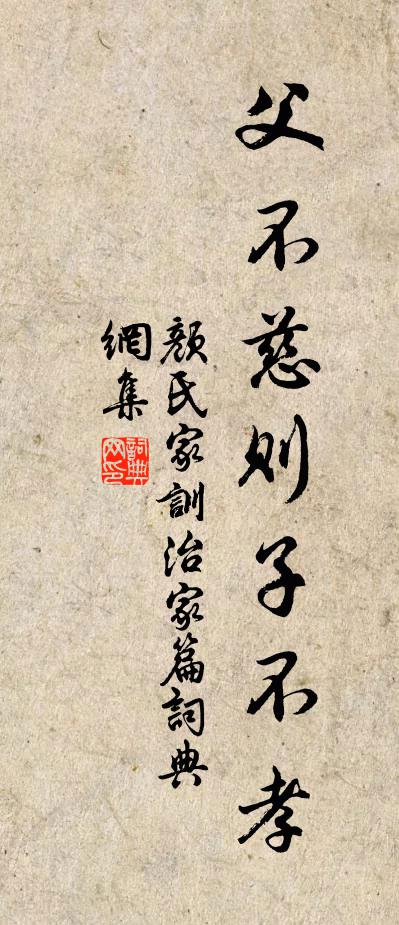 父不慈则子不孝
顏氏家訓治家篇詞典
網集
詞典
网印